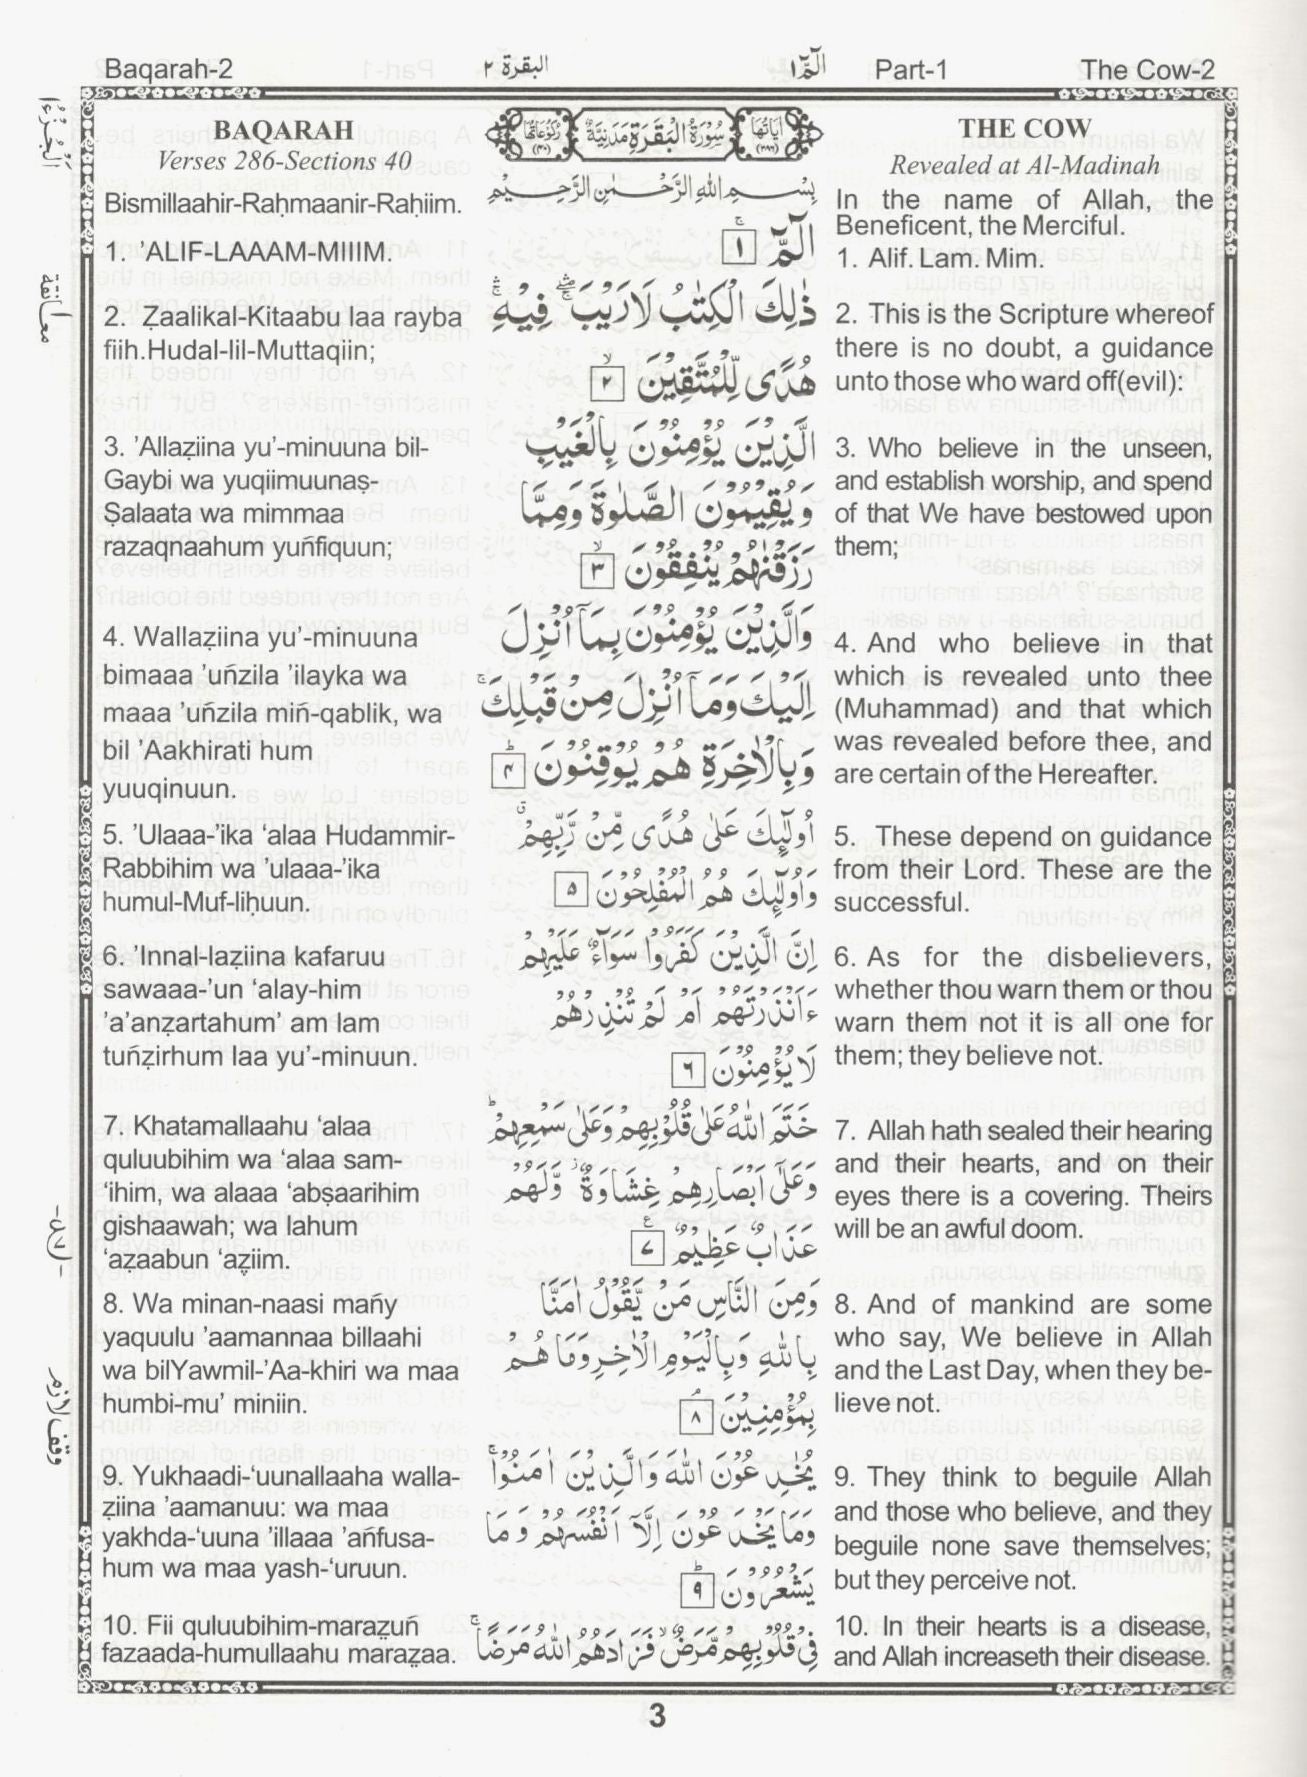 Baqarah-2
البقرة ٢
الٓمّٓ ١
Part-1
The Cow-2
BAQARAH
Verses 286-Sections 40
Bismillaahir-Raḥmaanir-Raḥiim.
1. ’ALIF-LAAAM-MIIIM.
2. Ẓaalikal-Kitaabu laa rayba
fiih.Hudal-lil-Muttaqiin;
3. ’Allaẓiina yu’-minuuna bil-
Gaybi wa yuqiimuunaṣ-
Ṣalaata wa mimmaa
razaqnaahum yuñfiquun;
4. Wallaẓiina yu’-minuuna
bimaaa ’uñzila ’ilayka wa
maaa ’uñzila miñ-qablik, wa
bil ’Aakhirati hum
yuuqinuun.
5. ’Ulaaa-’ika ‘alaa Hudammir-
Rabbihim wa ’ulaaa-’ika
humul-Muf-lihuun.
6. ’Innal-laẓiina kafaruu
sawaaa-’un ‘alay-him
’a’anẓartahum’ am lam
tuñẓirhum laa yu’-minuun.
7. Khatamallaahu ‘alaa
quluubihim wa ‘alaa sam-
‘ihim, wa alaaa ’abṣaarihim
gishaawah; wa lahum
‘aẓaabun ‘aẓiim.
8. Wa minan-naasi mañy
yaquulu ’aamannaa billaahi
wa bilYawmil-’Aa-khiri wa maa
humbi-mu’ miniin.
9. Yukhaadi-‘uunallaaha walla-
ẓiina ’aamanuu: wa maa
yakhda-‘uuna ’illaaa ’añfusa-
hum wa maa yash-‘uruun.
10. Fii quluubihim-maraẓuñ
fazaada-humullaahu maraẓaa.
اٰيَاتُهَا (٢٨٦)
سُوْرَةُ الْبَقَرَةِ مَدَنِيَّةٌ
رُكُوْعَاتُهَا (٤٠)
بِسْمِ اللّٰهِ الرَّحْمٰنِ الرَّحِيْمِ
الٓمّٓ ۚ ١
ذٰلِكَ الْكِتٰبُ لَا رَيْبَ ۛ فِيْهِ ۛ
هُدًى لِّلْمُتَّقِيْنَ ۙ ٢
الَّذِيْنَ يُؤْمِنُوْنَ بِالْغَيْبِ
وَيُقِيْمُوْنَ الصَّلٰوةَ وَمِمَّا
رَزَقْنٰهُمْ يُنْفِقُوْنَ ۙ ٣
وَالَّذِيْنَ يُؤْمِنُوْنَ بِمَاۤ اُنْزِلَ
اِلَيْكَ وَمَاۤ اُنْزِلَ مِنْ قَبْلِكَ ۚ
وَبِالْاٰخِرَةِ هُمْ يُوْقِنُوْنَ ؕ ٤
اُولٰٓئِكَ عَلٰى هُدًى مِّنْ رَّبِّهِمْ ۗ
وَاُولٰٓئِكَ هُمُ الْمُفْلِحُوْنَ ٥
اِنَّ الَّذِيْنَ كَفَرُوْا سَوَآءٌ عَلَيْهِمْ
ءَاَنْذَرْتَهُمْ اَمْ لَمْ تُنْذِرْهُمْ
لَا يُؤْمِنُوْنَ ٦
خَتَمَ اللّٰهُ عَلٰى قُلُوْبِهِمْ وَعَلٰى سَمْعِهِمْ ؕ
وَعَلٰٓى اَبْصَارِهِمْ غِشَاوَةٌ ۫ وَّلَهُمْ
عَذَابٌ عَظِيْمٌ ۧ ٧
وَمِنَ النَّاسِ مَنْ يَّقُوْلُ اٰمَنَّا
بِاللّٰهِ وَبِالْيَوْمِ الْاٰخِرِ وَمَا هُمْ
بِمُؤْمِنِيْنَ ۘ ٨
يُخٰدِعُوْنَ اللّٰهَ وَالَّذِيْنَ اٰمَنُوْا ۚ
وَمَا يَخْدَعُوْنَ اِلَّاۤ اَنْفُسَهُمْ وَمَا
يَشْعُرُوْنَ ؕ ٩
فِيْ قُلُوْبِهِمْ مَّرَضٌ ۙ فَزَادَهُمُ اللّٰهُ مَرَضًا ۚ
THE COW
Revealed at Al-Madinah
In the name of Allah, the
Beneficent, the Merciful.
1. Alif. Lam. Mim.
2. This is the Scripture whereof
there is no doubt, a guidance
unto those who ward off(evil):
3. Who believe in the unseen,
and establish worship, and spend
of that We have bestowed upon
them;
4. And who believe in that
which is revealed unto thee
(Muhammad) and that which
was revealed before thee, and
are certain of the Hereafter.
5. These depend on guidance
from their Lord. These are the
successful.
6. As for the disbelievers,
whether thou warn them or thou
warn them not it is all one for
them; they believe not.
7. Allah hath sealed their hearing
and their hearts, and on their
eyes there is a covering. Theirs
will be an awful doom.
8. And of mankind are some
who say, We believe in Allah
and the Last Day, when they be-
lieve not.
9. They think to beguile Allah
and those who believe, and they
beguile none save themselves;
but they perceive not.
10. In their hearts is a disease,
and Allah increaseth their disease.
معانقة
وقف لازم
3